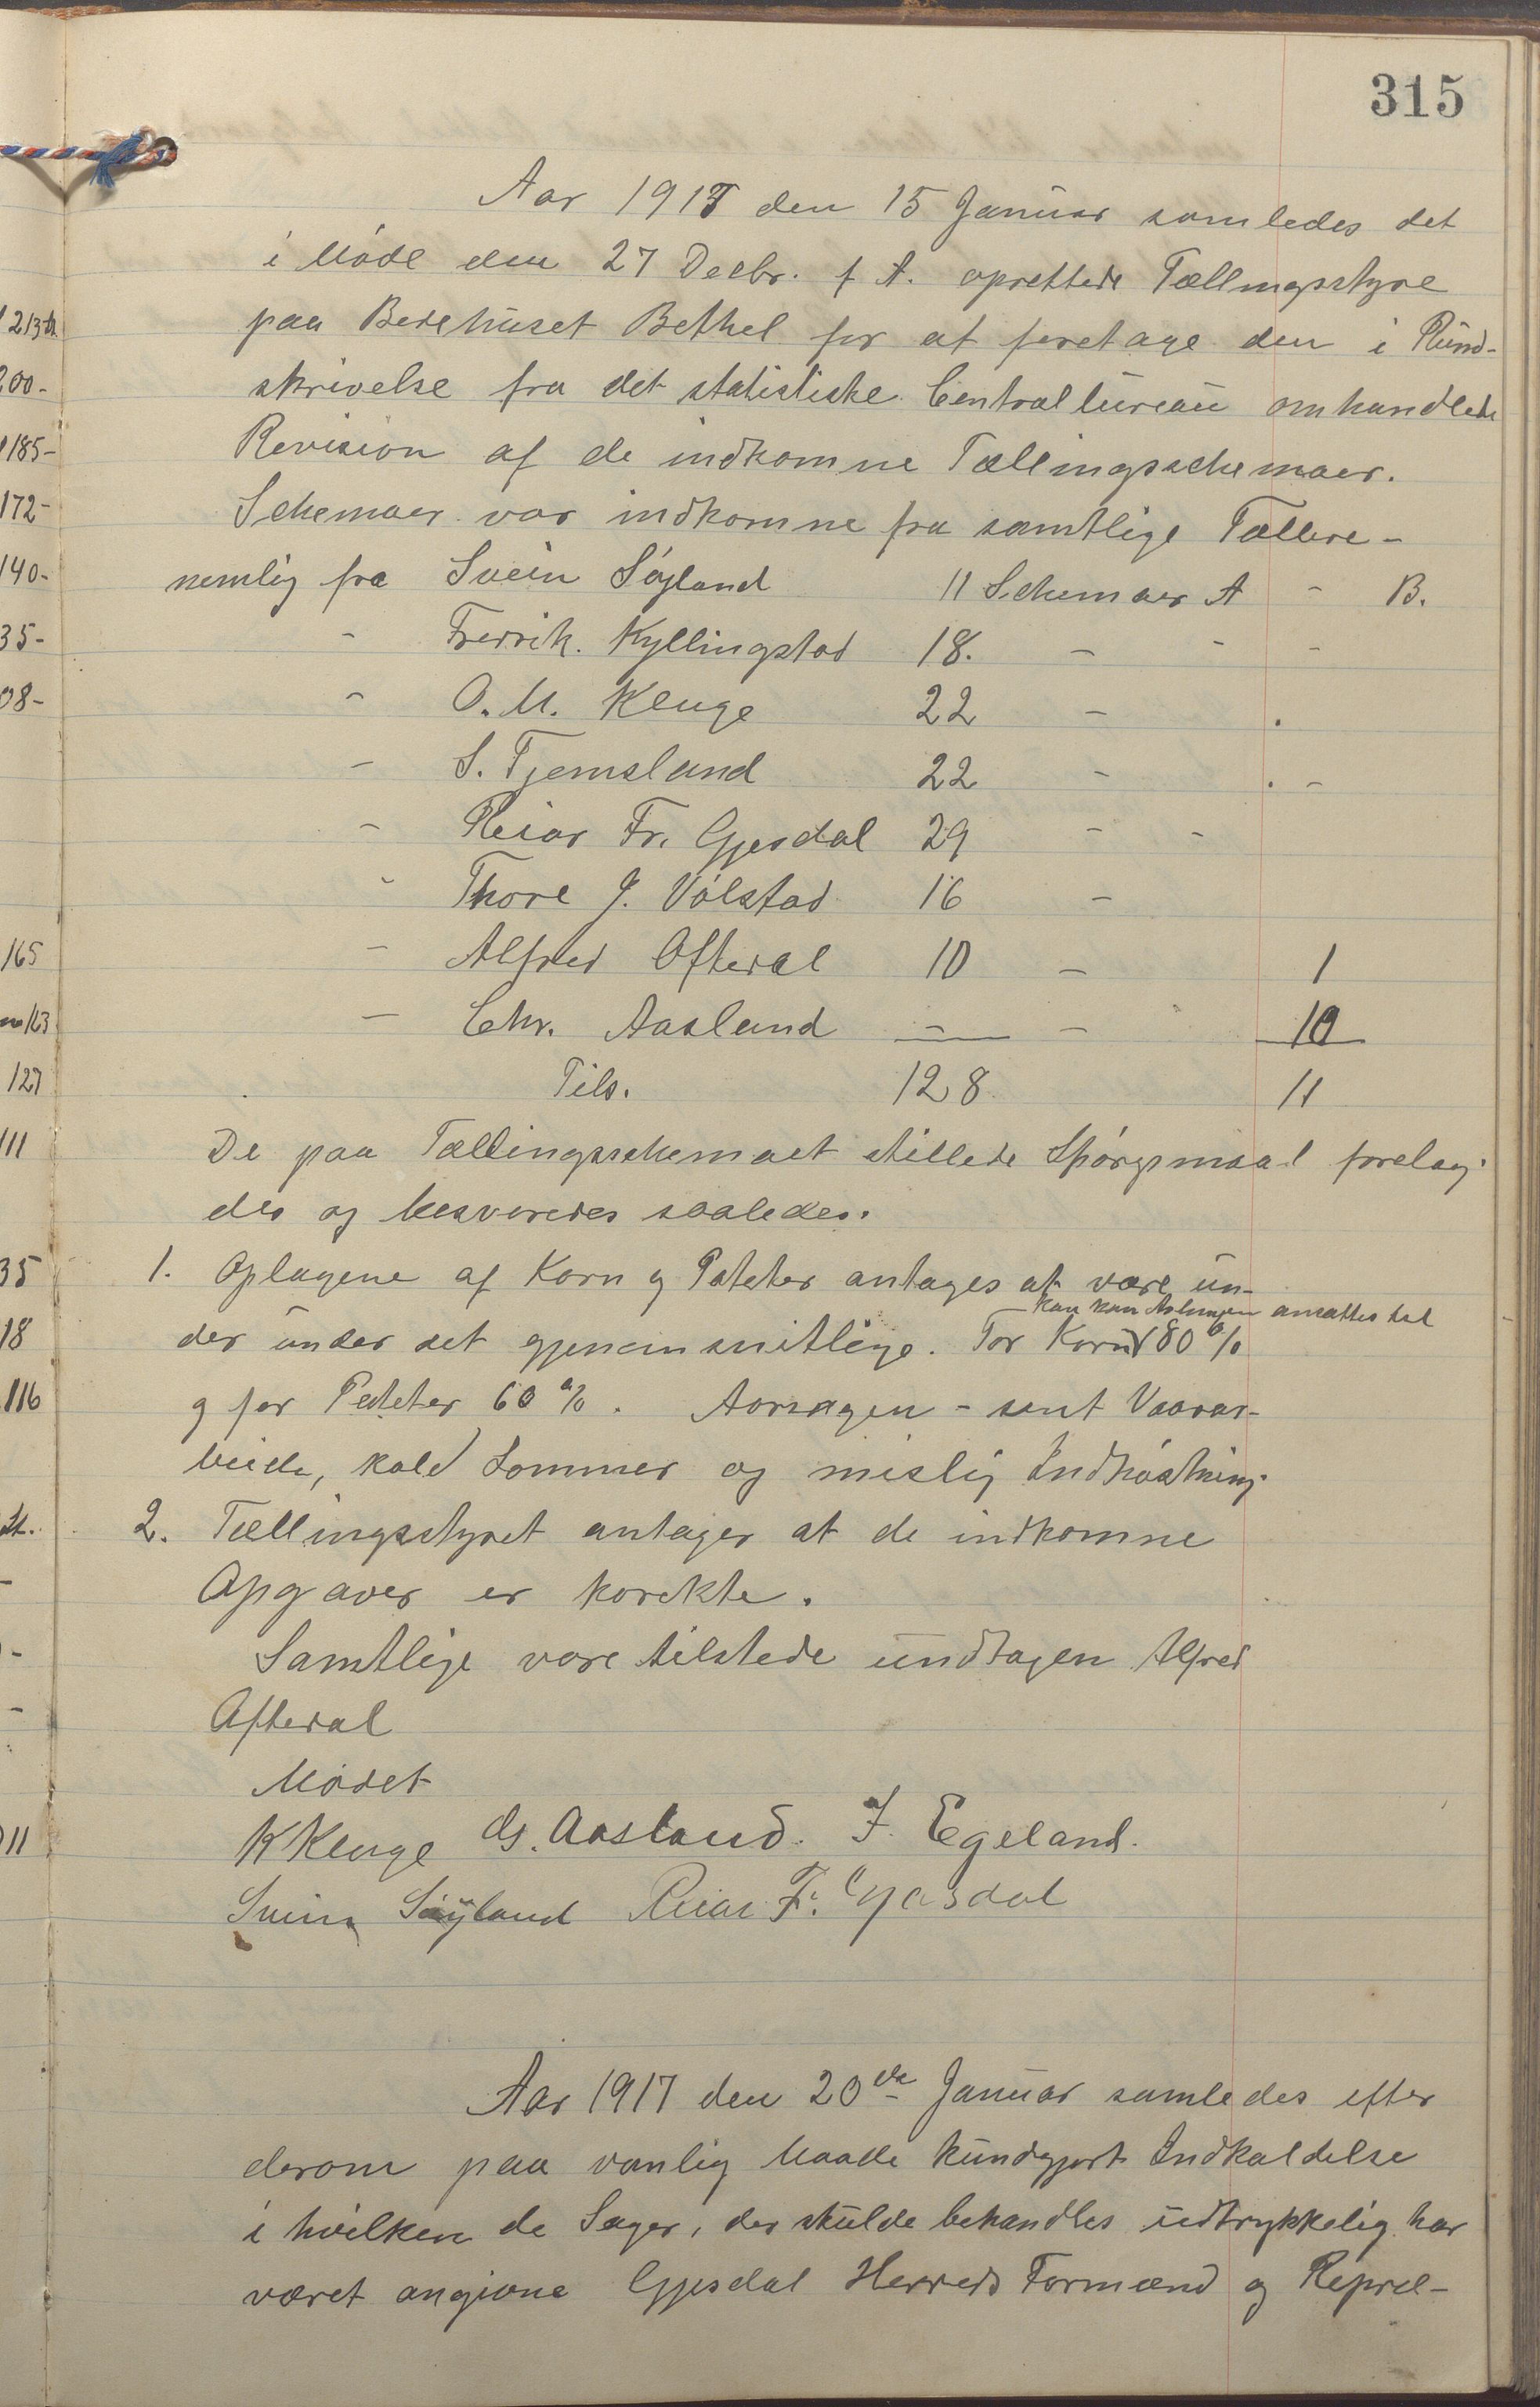 315
Aar 1917 den 15 Januar samledes det
i Møde den 27 Decbr. f A. oprettede Tællingsstyre
paa Bedehuset Bethel for at foretage den i Rund-
skrivelse fra det statistiske Centralbureau omhandlede
Revision af de indkomne Tællingsschemaer.
Schemaer var indkomne fra samtlige Tællere -
nemlig fra Svein Søyland 11 Schemaer A - B.
- Fredrik. Kyllingstad 18. - - -
- O. M. Kluge 22 - .
- S. Tjemsland 22 - . -
- Reiar Fr. Gjesdal 29 - -
- Thore J. Vølstad 16 -
- Alfred Ofterdal 10 - 1
- Chr. Aasland - - 10
Tils. 128 11
De paa Tællingsschemaet stillede Spørgsmaal forelag-
des og besvaredes saaledes.
1. Oplagene af Korn og Poteter antages at være un-
kan kun Avlingen ansættes til
der under det gjenemsnitlige. For Korn 80 %
og for Poteter 60 %. Aarsagen - sent Vaarar-
beide, kold Sommer og mislig Indhøstning.
2. Tællingsstyret antager at de indkomne
Opgaver er korekte.
Samtlige vare tilstede undtagen Alfred
Ofterdal
Mødet
K Kluge Chr. Aasland. J. Egeland.
Svein Søyland Reiar F. Gjesdal
Aar 1917 den 20de Januar samledes efter
derom paa vanlig Maade kundgjort Indkaldelse
i hvilken de Sager, der skulde behandles udtrykkelig har
været angivne Gjesdal Herreds Formænd og Repræ-
213
200-
185-
172-
140-
35-
08-
165
163
127
111
35
18
116
11